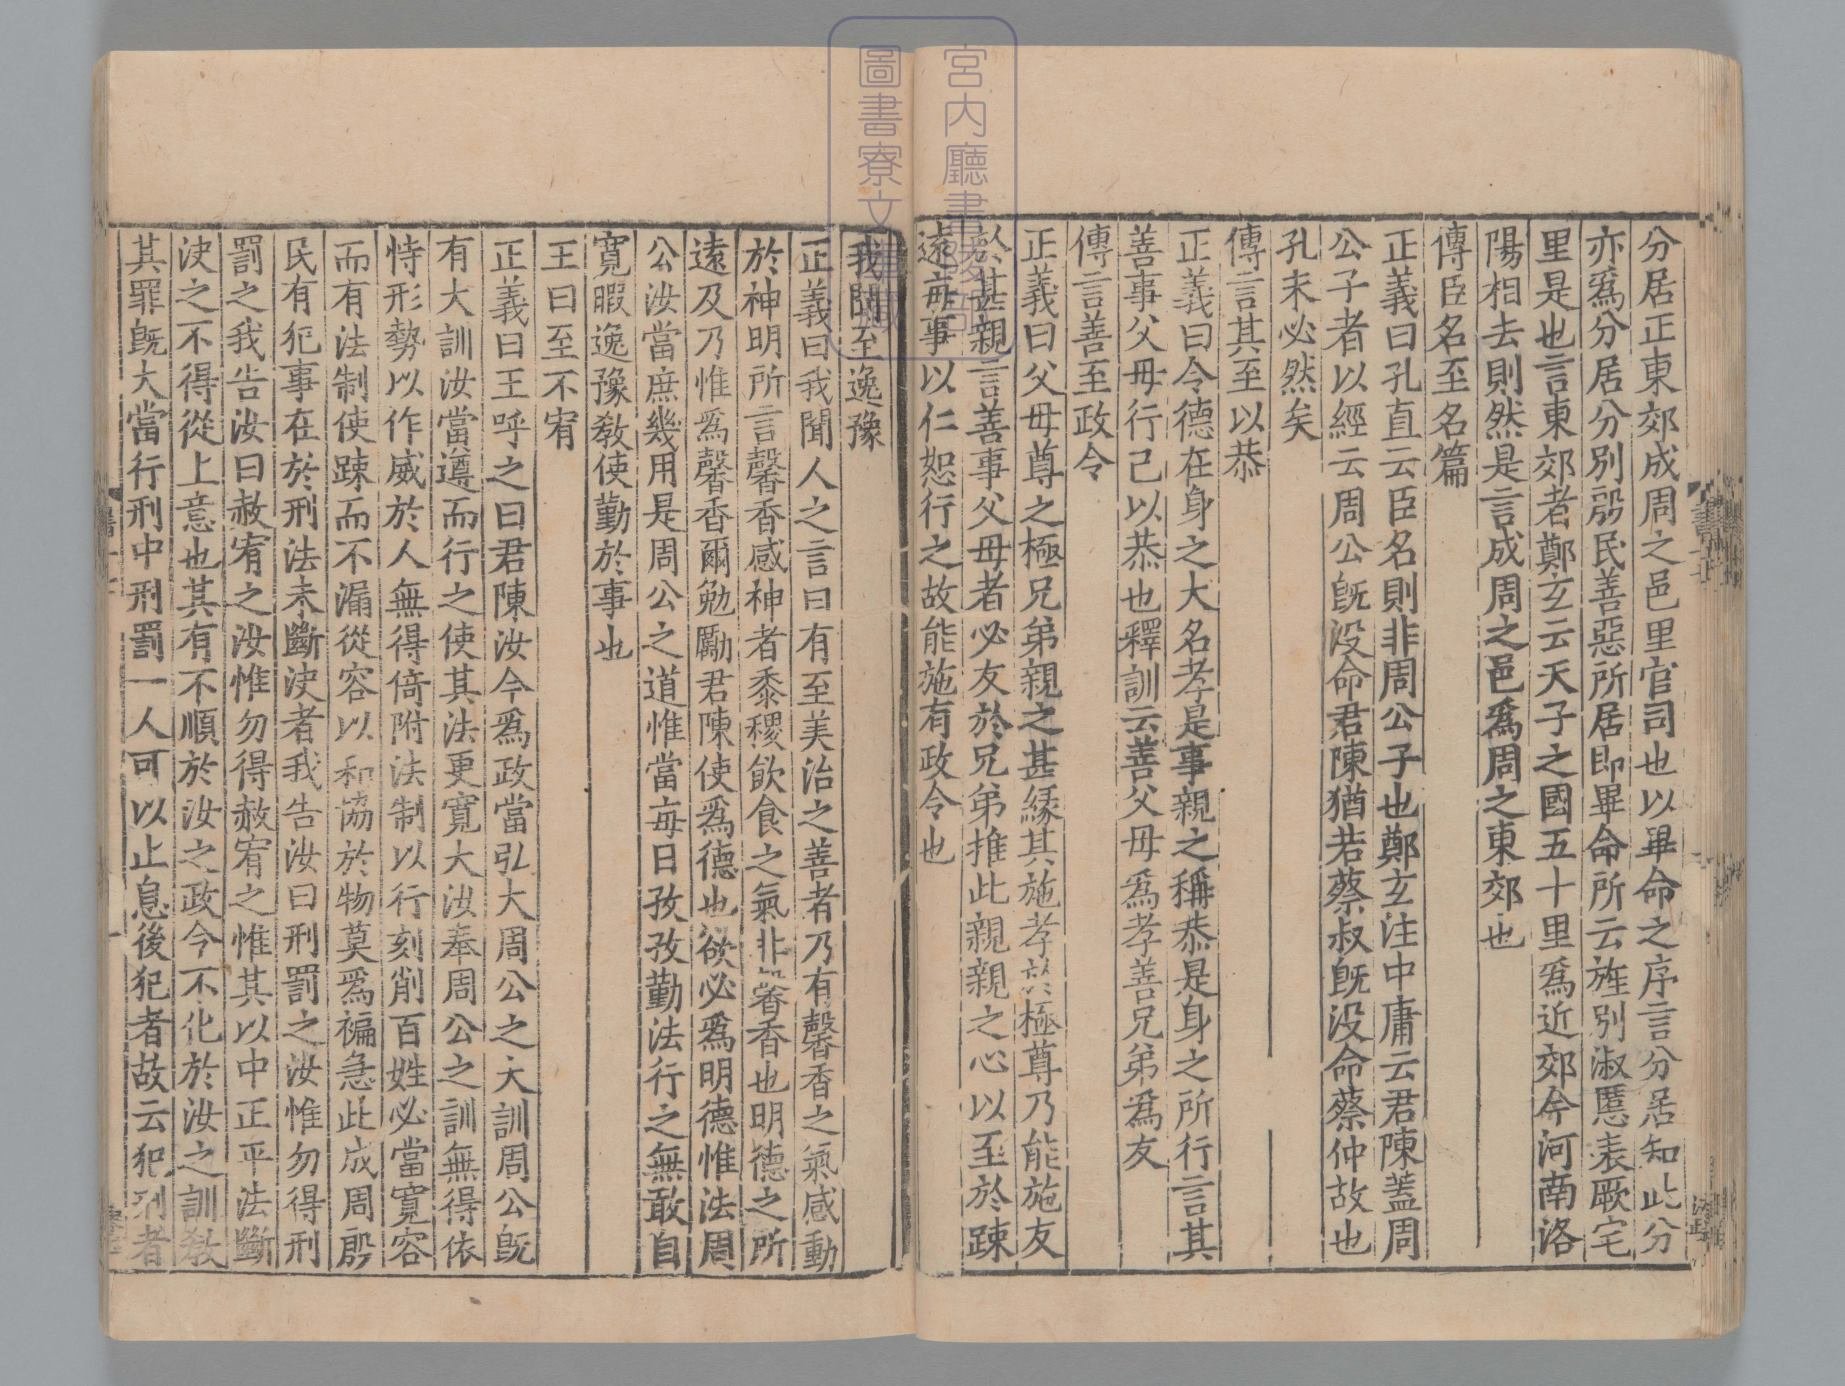 分居正東郊成周之邑里官司也以畢命之序言分居知此分
亦爲分居分別殷民善惡所居即畢命所云旌別淑慝表厥宅
里是也言東郊者鄭玄云天子之國五十里爲近郊今河南洛
陽相去則然是言成周之邑爲周之東郊也
傳臣名至名篇
正義曰孔直云臣名則非周公子也鄭玄注中庸云君陳蓋周
公子者以經云周公旣没命君陳猶若蔡叔旣没命蔡仲故也
孔未必然矣
傳言其至以恭
正義曰令德在身之大名孝是事親之稱恭是身之所行言其
善事父母行己以恭也釋訓云善父母爲孝善兄弟爲友
傳言善至政令
正義曰父母尊之極兄弟親之甚緣其施孝於極尊乃能施友
於甚親言善事父母者必友於兄弟推此親親之心以至於踈
遠每事以仁恕行之故能施有政令也
我聞至逸豫
正義曰我聞人之言曰有至美治之善者乃有馨香之氣感動
於神明所言馨香感神者黍稷飲食之氣非馨香也明德之所
遠及乃惟爲馨香爾勉勵君陳使爲德也欲必爲明德惟法周
公汝當庶幾用是周公之道惟當每日孜孜勤法行之無敢自
寬暇逸豫敎使勤於事也
王曰至不宥
正義曰王呼之曰君陳汝今爲政當弘大周公之大訓周公旣
有大訓汝當遵而行之使其法更寬大汝奉周公之訓無得依
恃形勢以作威於人無得倚附法制以行刻削百姓必當寬容
而有法制使踈而不漏從容以和協於物莫爲褊急此成周殷
民有犯事在於刑法未斷决者我告汝曰刑罰之汝惟勿得刑
罰之我告汝曰赦宥之汝惟勿得赦宥之惟其以中正平法斷
决之不得從上意也其有不順於汝之政令不化於汝之訓敎
其罪旣大當行刑中刑罰一人可以止息後犯者故云犯刑者
宮内廳書陵部
圖書寮文庫藏